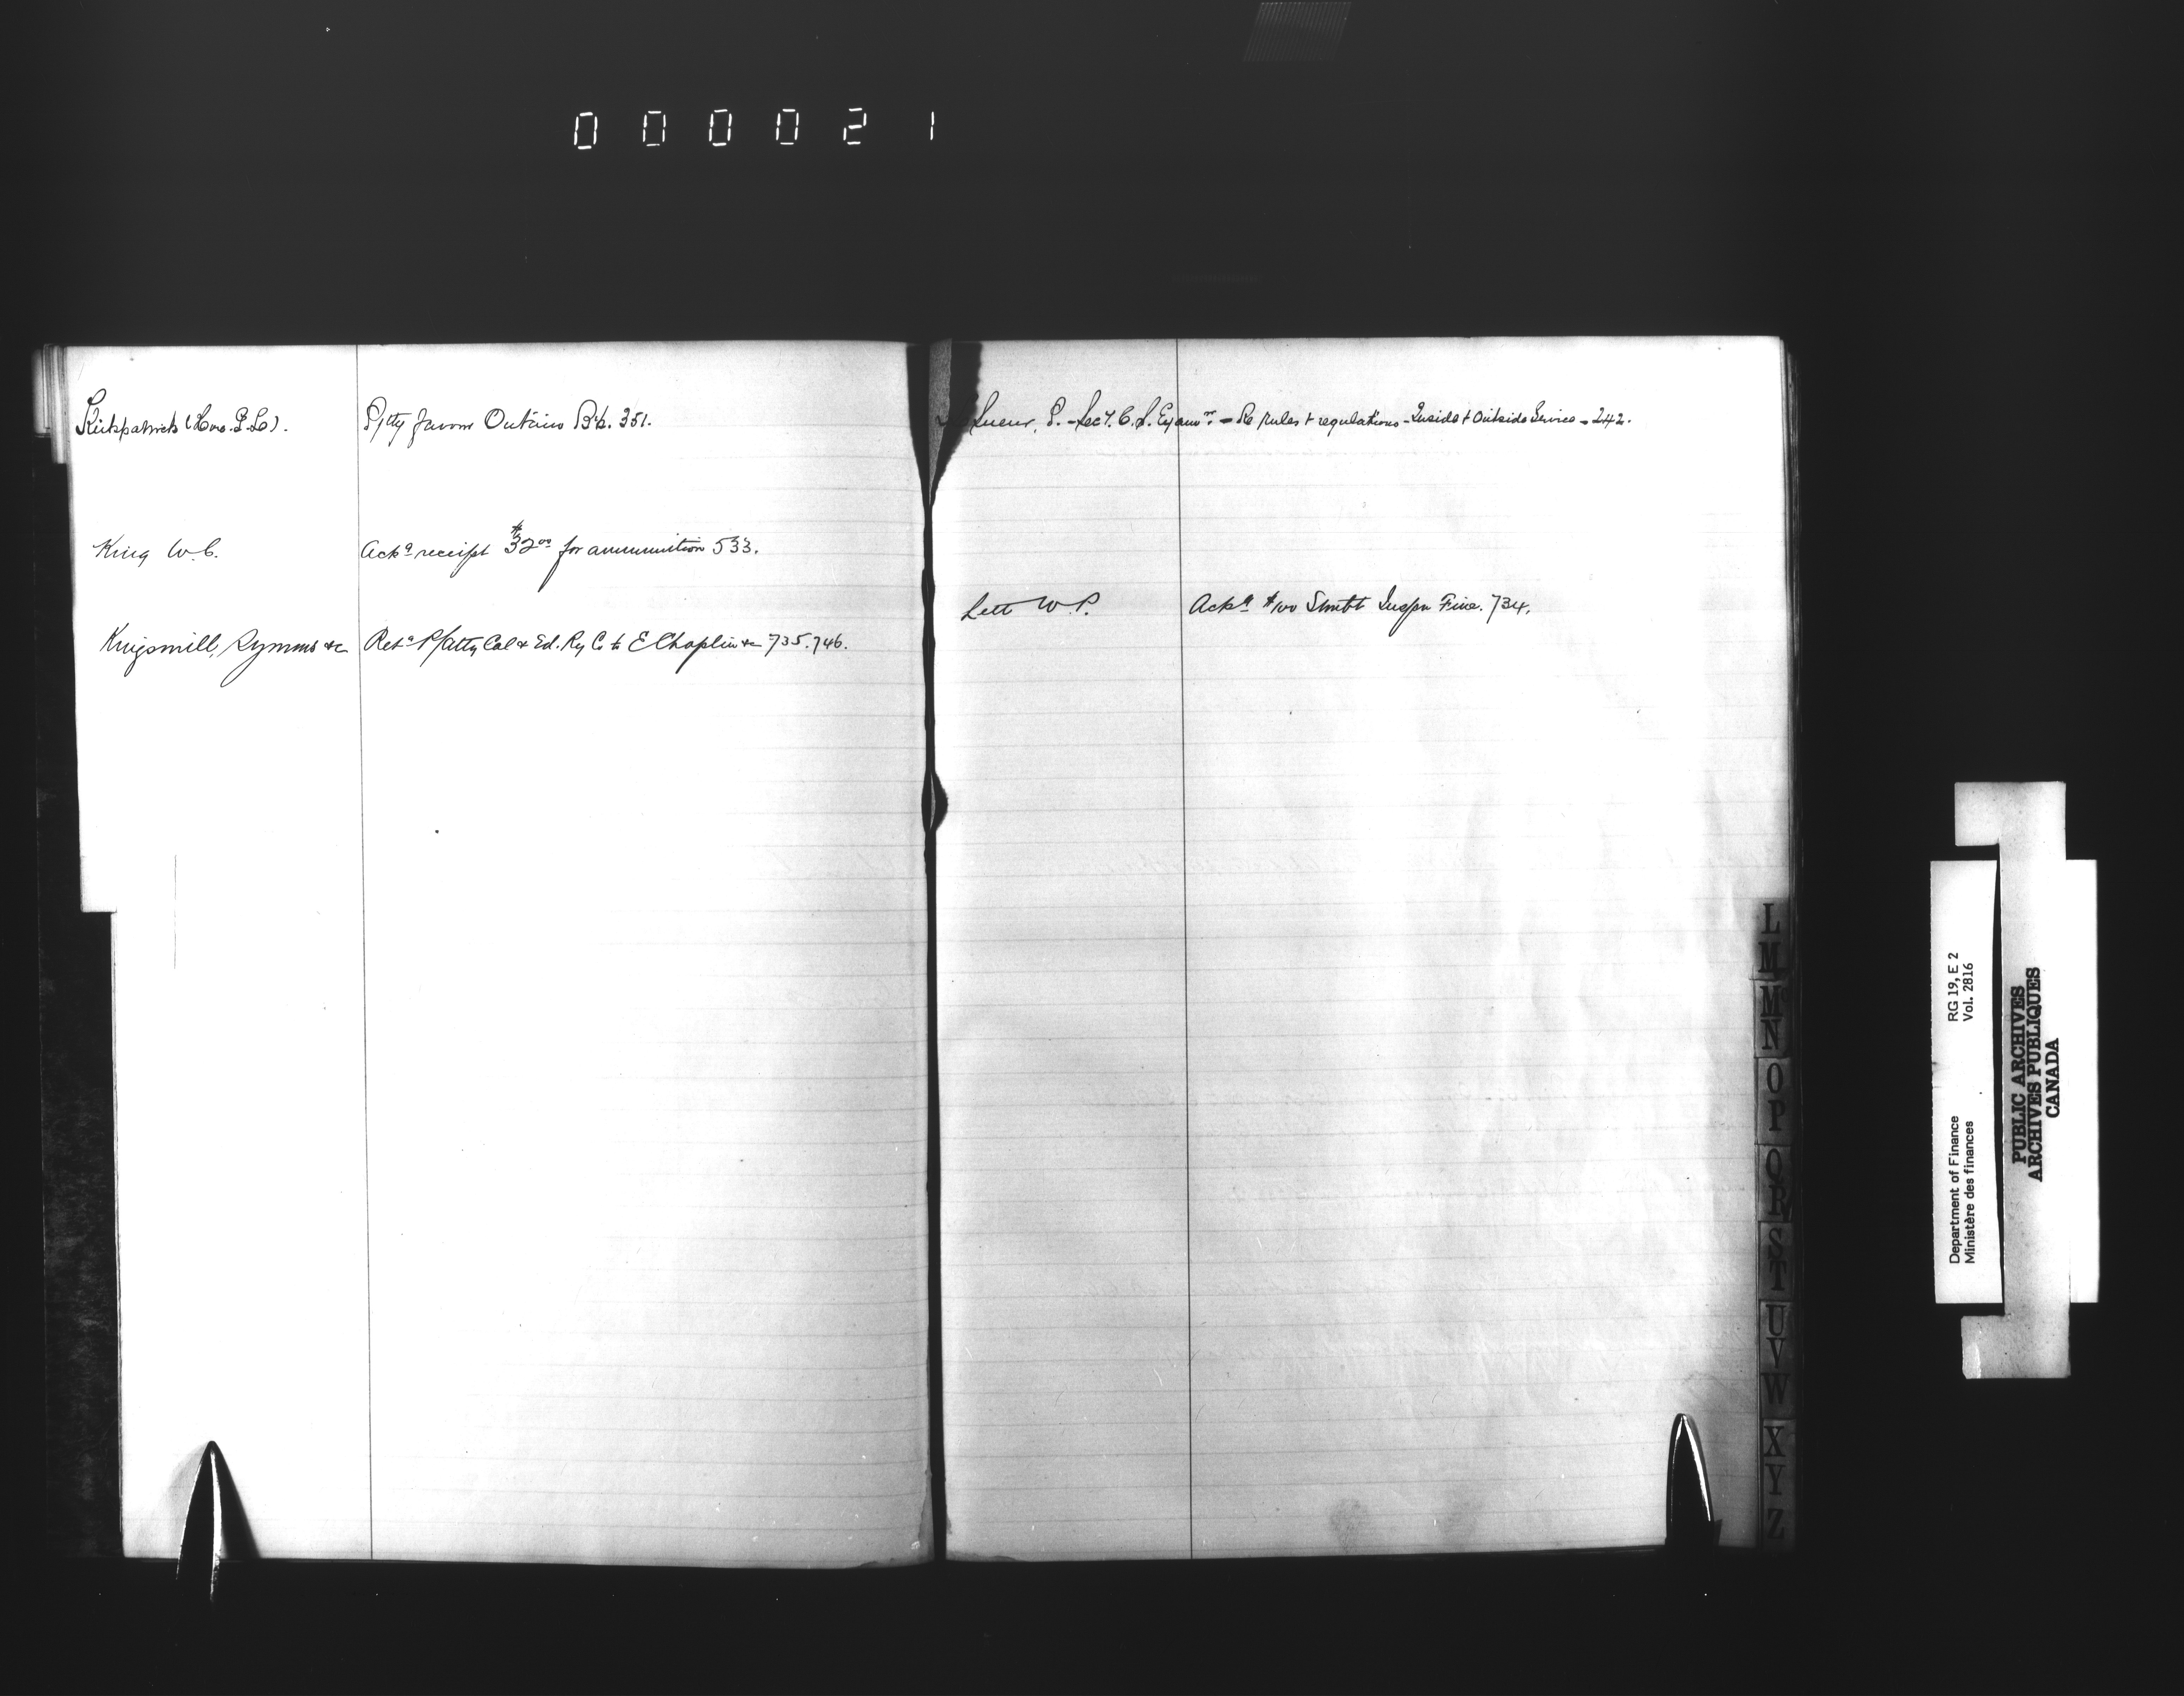 000021
Kirkpatrick (Hon. G.A.).
P/atty favour Ontario Bk. 351.
King W.C.
Ackg receipt $32.00 for ammunition 533.
Kingsmill, Symons &c
Retg P/atty Cal & Ed. Ry Co to E Chaplin &c 735.746.
Sueur, P. - Secy. C.S. Examrs. - Re rules & regulations - Inside & Outside Service - 242.
Lett W.P.
Ackg $100 Inspn Fine. 734.
L
M
M
N
O
P
Q
R
S
T
U
V
W
X
Y
Z
Department of Finance RG 19, E 2
Ministère des finances Vol. 2816
PUBLIC ARCHIVES
ARCHIVES PUBLIQUES
CANADA